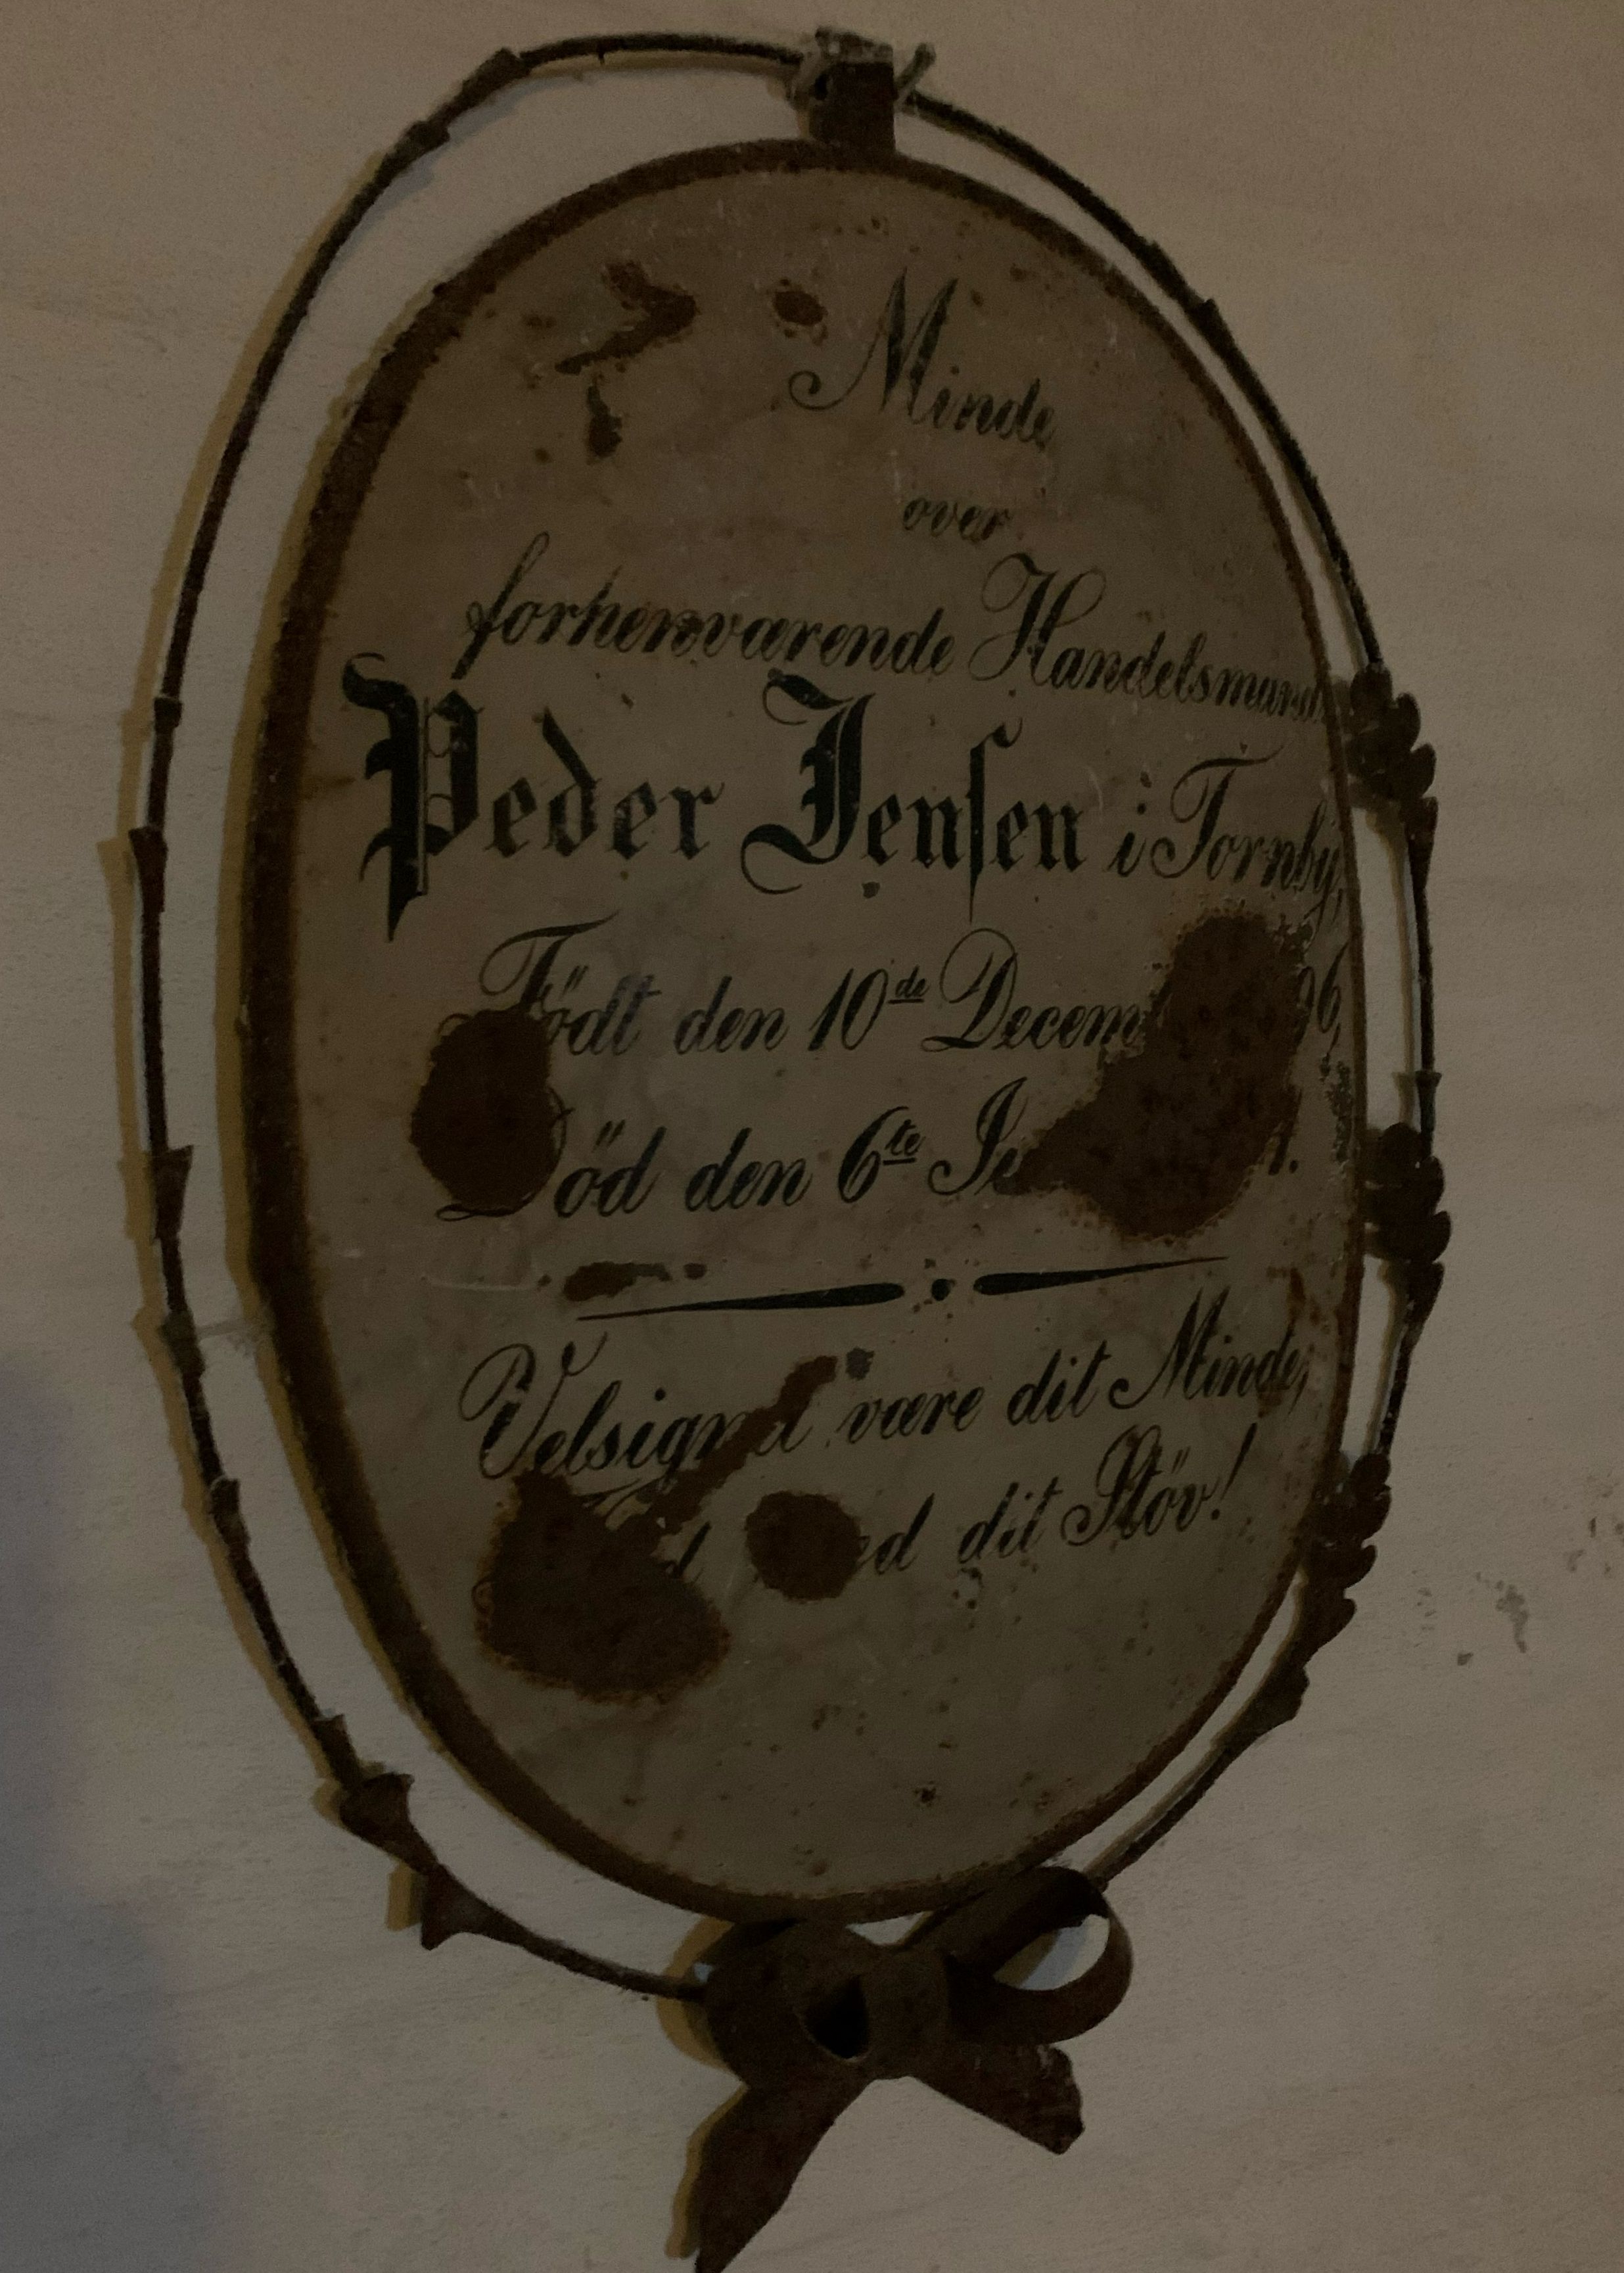 Minde
over
forhenværende Handelsmand
Peder Jensen i Tornby,
Födt den 10de
Död den 6te
Velsignet være dit Minde,
dit Stöv!